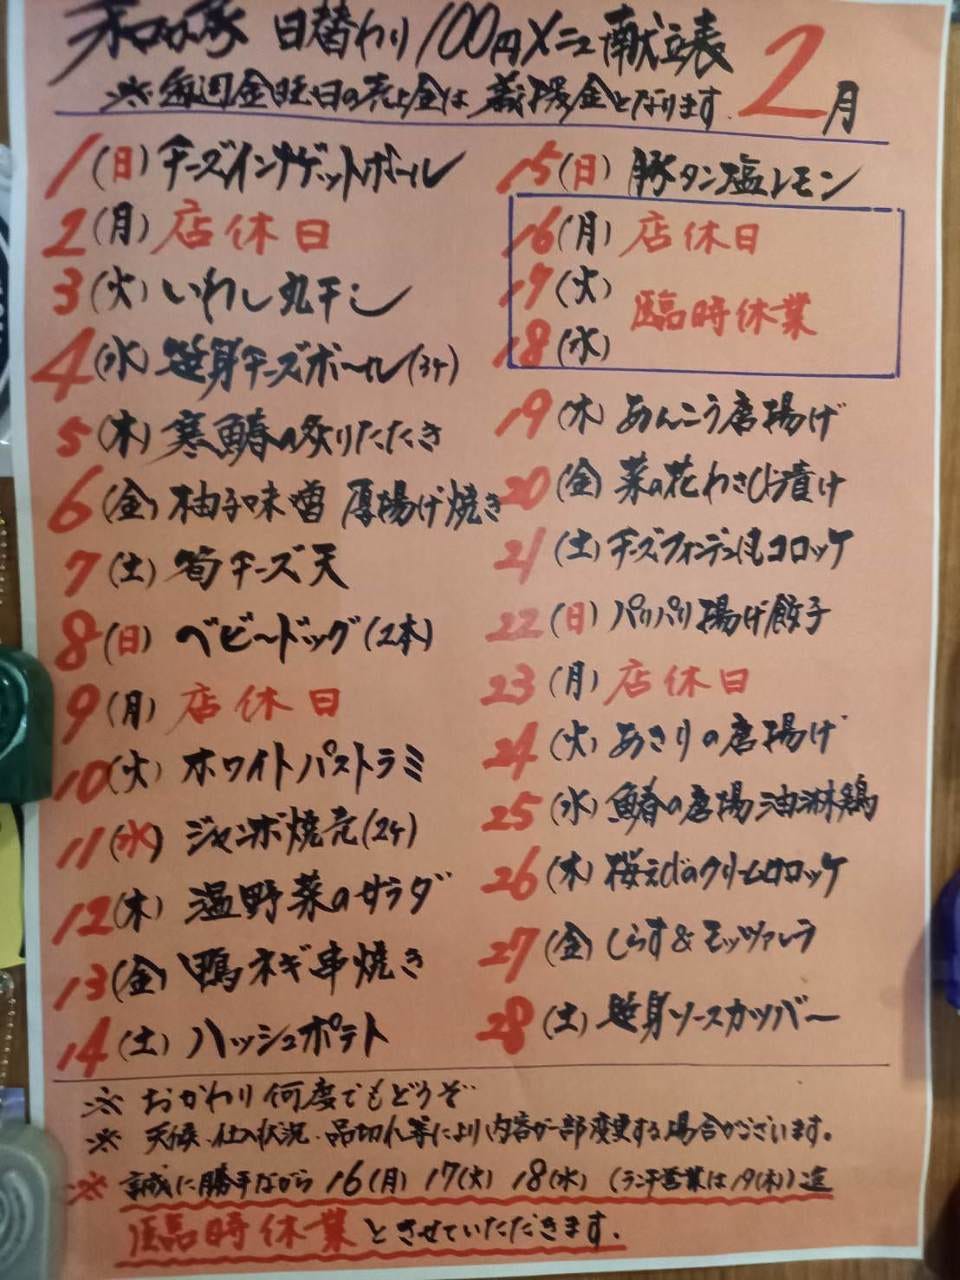 日替わり100円メニュー献立表 2月
※毎週金曜日の売上金は義援金となります。
1(日)チーズインナゲットボール
2(月)店休日
3(火)いわし丸干し
4(水)笹身チーズボール(3ヶ)
5(木)寒鰆の炙りたたき
6(金)柚子味噌 厚揚げ焼き
7(土)筍チーズ天
8(日)ベビードッグ(2本)
9(月)店休日
10(火)ホワイトパストラミ
11(水)ジャンボ焼売(2ヶ)
12(木)温野菜のサラダ
13(金)鴨ネギ串焼き
14(土)ハッシュポテト
15(日)豚タン塩レモン
16(月)店休日
17(火)
臨時休業
18(水)
19(木)あんこう唐揚げ
20(金)菜の花わさび漬け
21(土)チーズフォンデュ風コロッケ
22(日)パリパリ揚げ餃子
23(月)店休日
24(火)あさりの唐揚げ
25(水)鰆の唐揚油淋鶏
26(木)桜えびのクリームコロッケ
27(金)しらす&モッツァレラ
28(土)笹身ソースカツバー
※おかわり何度でもどうぞ
※天候、仕入状況、品切れ等により内容が一部変更する場合がございます。
※誠に勝手ながら16(月)17(火)18(水)(ランチ営業は19(木))迄
臨時休業とさせていただきます。